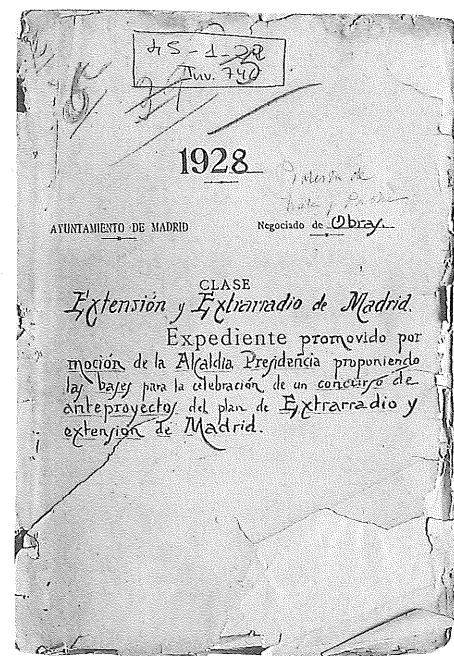 45-1-22
Inv. 740
1928
AYUNTAMIENTO DE MADRID
Negociado de Obras.
CLASE
Extensión y Extrarradio de Madrid.
Expediente promovido por
moción de la Alcaldía Presidencia proponiendo
las bases para la celebración de un concurso de
anteproyectos del plan de Extrarradio y
extensión de Madrid.